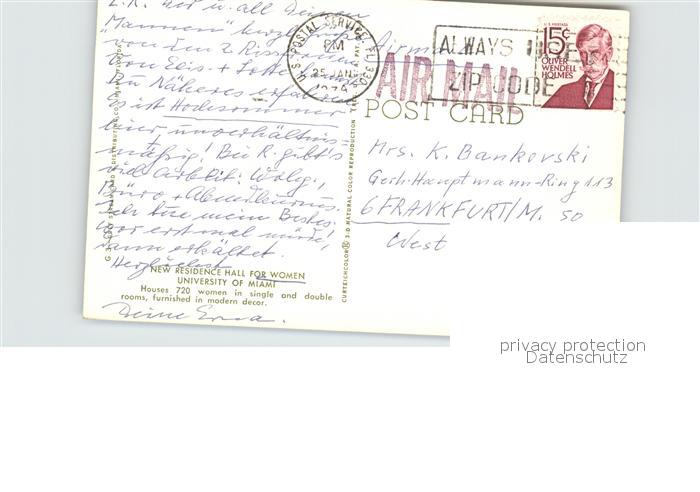 L.K. Dir u. all Deinen
"Mannen"
von den 2
von Elis. + Lotte
zu Näheres erfahren
Es ist Hochsommer
hier, unverhältnis-
mäßig! Bei R. gibt's
viel Arbeit:
Büro + Abendkurse.
Ich tue mein Bestes.
War erst mal müde,
dann erkältet.
Herzlichst
Deine Erna.
NEW RESIDENCE HALL FOR WOMEN
UNIVERSITY OF MIAMI
Houses 720 women in single and double
rooms, furnished in modern decor.
CURTEICHCOLOR® 3-D NATURAL COLOR REPRODUCTION
U.S. POSTAL SERVICE, FL 330
PM
25 JAN
ALWAYS USE
ZIP CODE
U.S. POSTAGE
15¢
OLIVER
WENDELL
HOLMES
Air mail
AIR MAIL
POST CARD
Mrs. K. Bankovski
Gerh.-Hauptmann-Ring 113
6 FRANKFURT/M. 50
West
privacy protection
Datenschutz